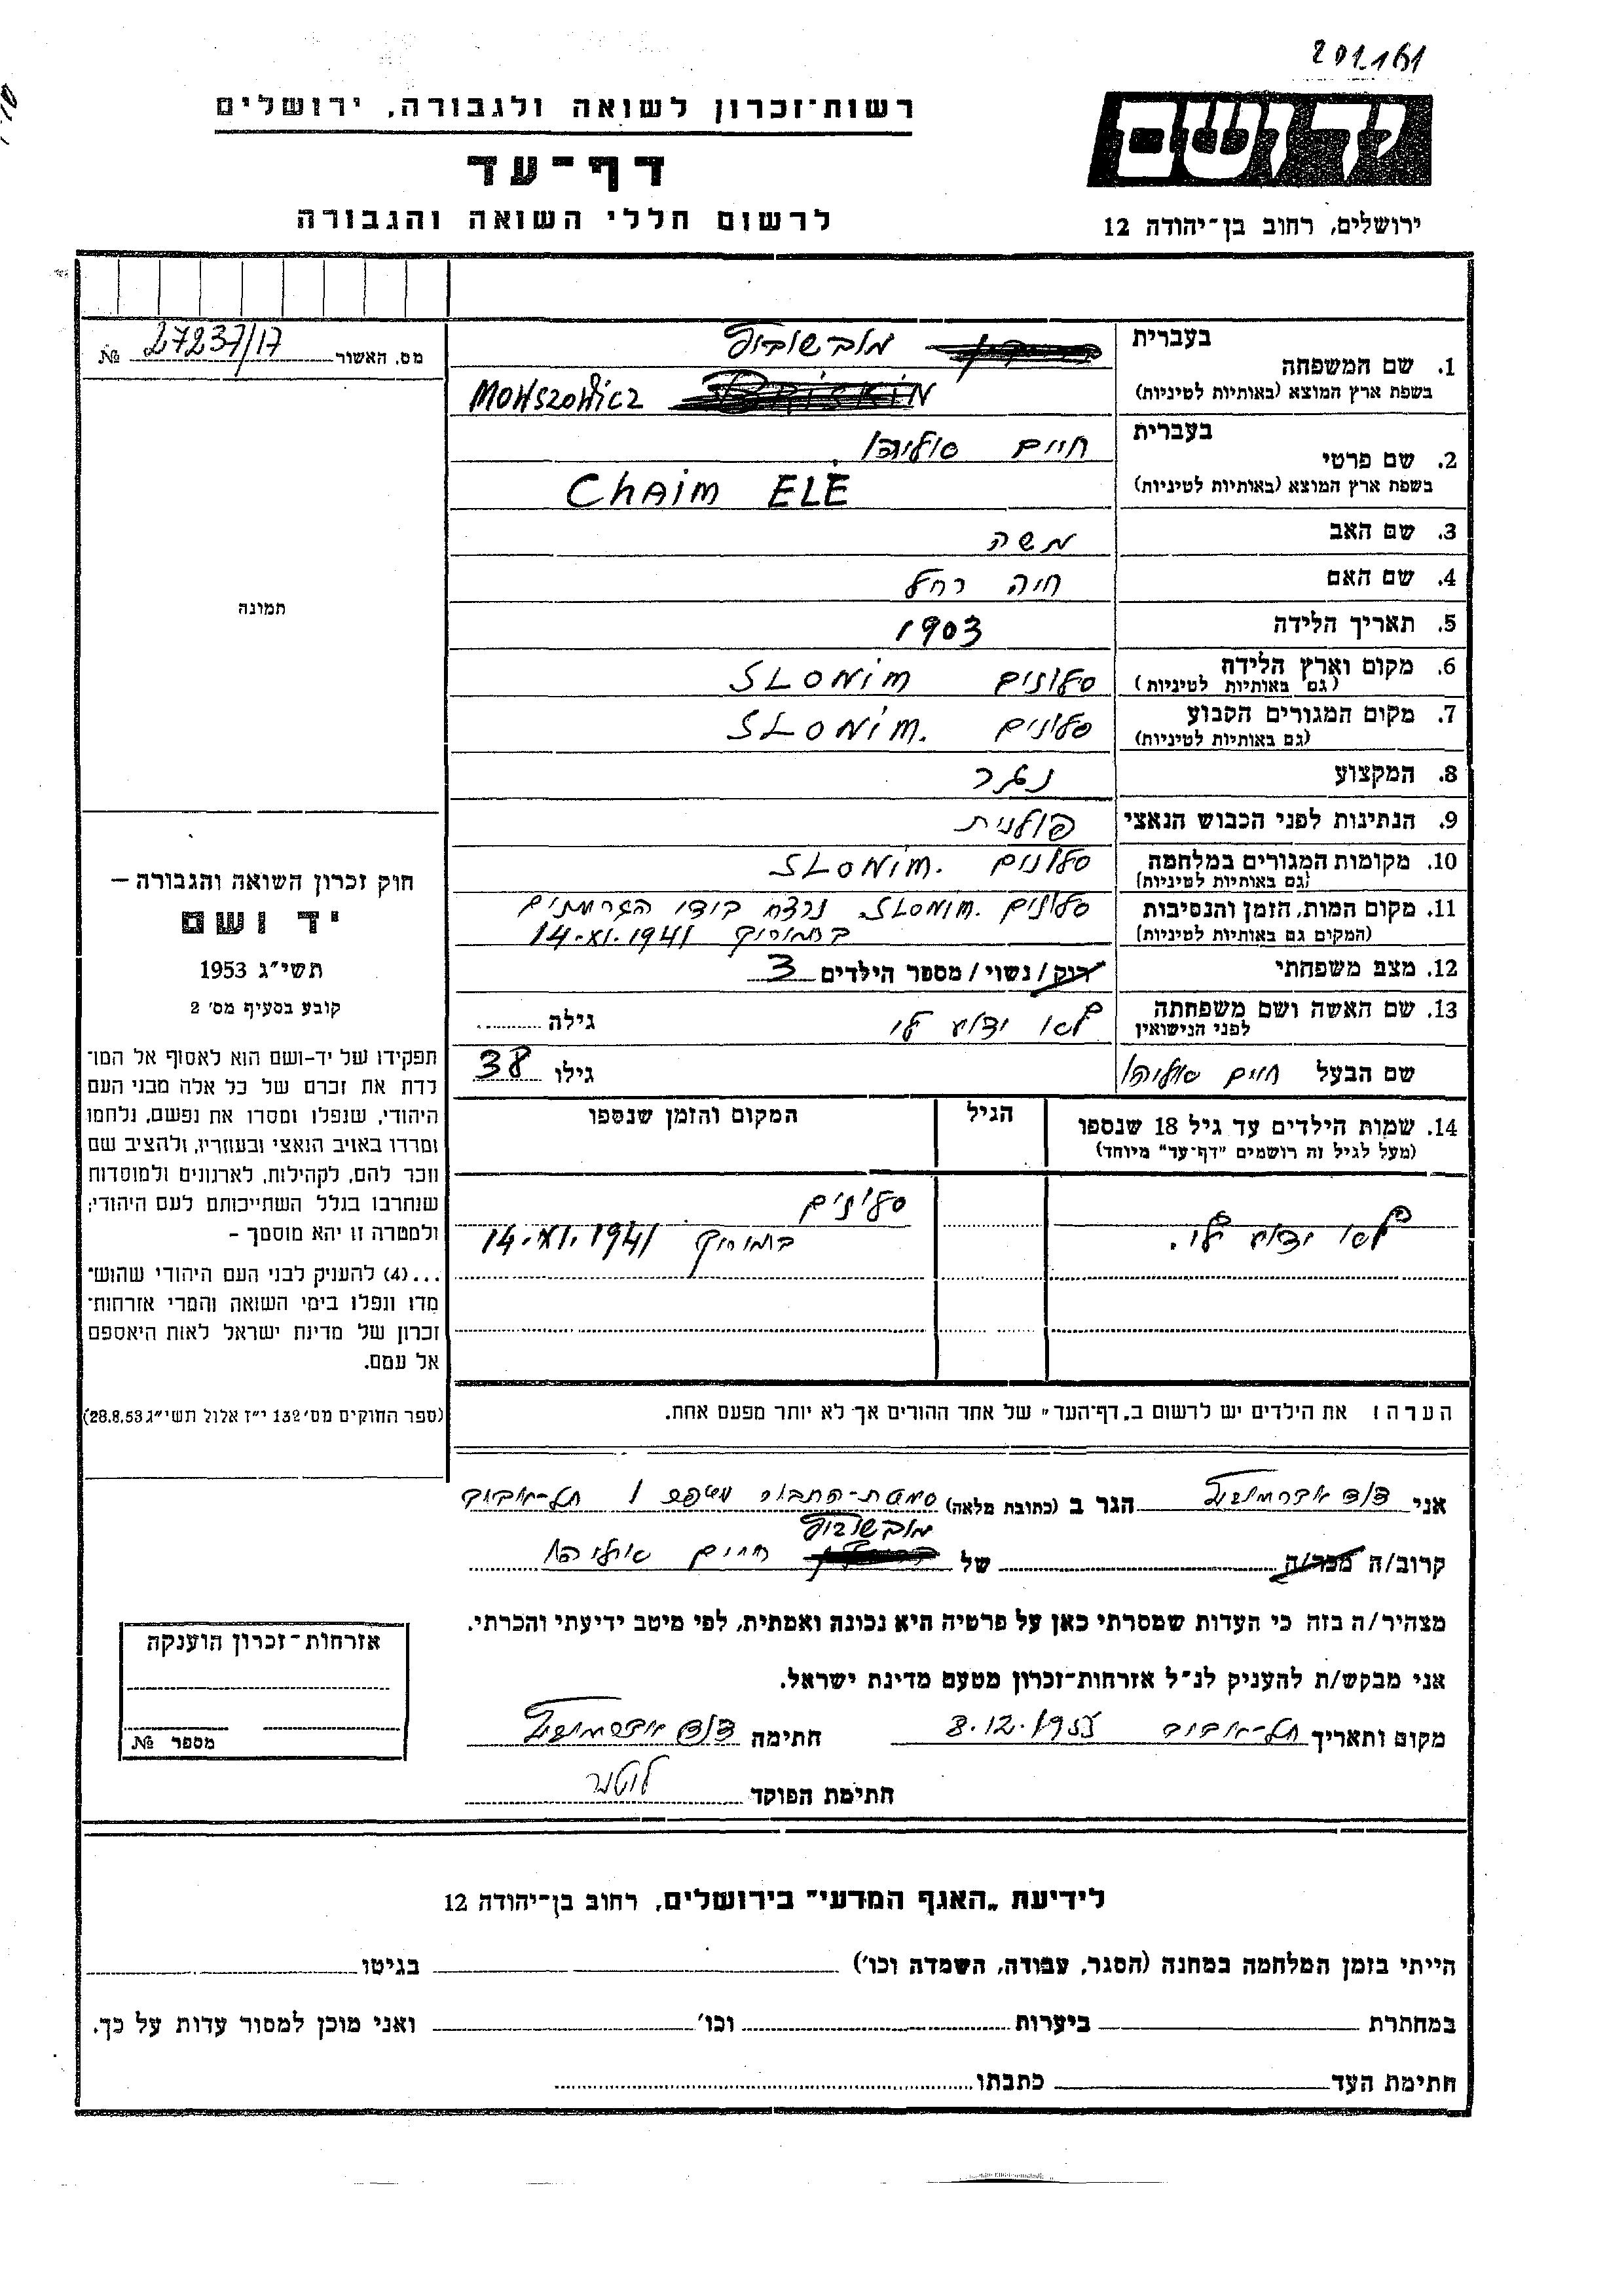 201161
רשות־זכרון לשואה ולגבורה, ירושלים
דף־עד
לרשום חללי השואה והגבורה
יד ושם
ירושלים, רחוב בן־יהודה 12
מס. האשור 27237/17 №
תמונה
חוק זכרון השואה והגבורה –
יד ושם
תשי״ג 1953
קובע בסעיף מס׳ 2
תפקידו של יד-ושם הוא לאסוף אל המו־
לדת את זכרם של כל אלה מבני העם
היהודי, שנפלו ומסרו את נפשם, נלחמו
ומרדו באויב הנאצי ובעוזריו, ולהציב שם
וזכר להם, לקהילות, לארגונים ולמוסדות
שנחרבו בגלל השתייכותם לעם היהודי;
ולמטרה זו יהא מוסמך –
...(4) להעניק לבני העם היהודי שהוש־
מדו ונפלו בימי השואה והמרי אזרחות־
זכרון של מדינת ישראל לאות היאספם
אל עמם.
(ספר החוקים מס׳ 132 י״ז אלול תשי״ג 28.8.53)
בעברית
1. שם המשפחה מובשוביץ
בשפת ארץ המוצא (באותיות לטיניות) MOWSZOWICZ BRISKIN
בעברית
2. שם פרטי חיים אליהו
בשפת ארץ המוצא (באותיות לטיניות) CHAIM ELE
3. שם האב משה
4. שם האם חיה רחל
5. תאריך הלידה 1903
6. מקום וארץ הלידה סלונים SLONIM
(גם באותיות לטיניות)
7. מקום המגורים הקבוע סלונים SLONIM.
(גם באותיות לטיניות)
8. המקצוע נגר
9. הנתינות לפני הכבוש הנאצי פולנית
10. מקומות המגורים במלחמה סלונים SLONIM.
(גם באותיות לטיניות)
11. מקום המות, הזמן והנסיבות סלונים SLONIM. נרצח בידי הגרמנים
(המקום גם באותיות לטיניות) בתאריך 14.XI.1941
12. מצב משפחתי רוק/נשוי/מספר הילדים 3
13. שם האשה ושם משפחתה לא ידוע לי גילה
לפני הנישואין
שם הבעל חיים אליהו גילו 38
14. שמות הילדים עד גיל 18 שנספו הגיל המקום והזמן שנספו
(מעל לגיל זה רושמים "דף־עד" מיוחד)
סלונים
לא ידוע לי. בתאריך 14.XI.1941
הערה: את הילדים יש לרשום ב„דף־העד״ של אחד ההורים אך לא יותר מפעם אחת.
אני דוד אברמוביץ הגר ב (כתובת מלאה) סמטת- 1 תל-אביב
מובשוביץ
קרוב/ה מכר/ה של חיים אליהו
מצהיר/ה בזה כי העדות שמסרתי כאן על פרטיה היא נכונה ואמתית, לפי מיטב ידיעתי והכרתי.
אני מבקש/ת להעניק לנ״ל אזרחות־זכרון מטעם מדינת ישראל.
מקום ותאריך תל-אביב 8.12.1955 חתימה דוד אברמוביץ
חתימת הפוקד
אזרחות־זכרון הוענקה
מספר №
לידיעת „האגף המדעי״ בירושלים, רחוב בן־יהודה 12
הייתי בזמן המלחמה במחנה (הסגר, עבודה, השמדה וכו׳) בגיטו
במחתרת ביערות וכו׳ ואני מוכן למסור עדות על כך.
חתימת העד כתבתו